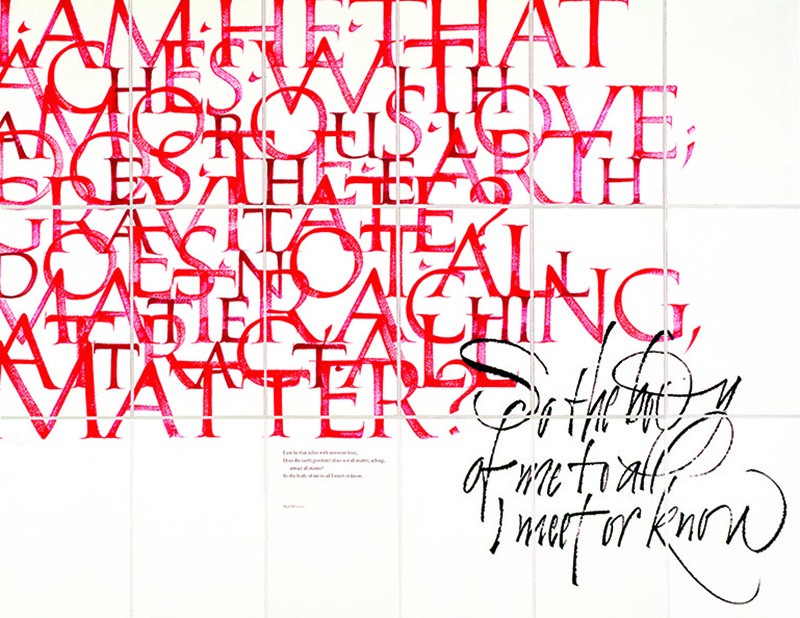 I·AM·HE·THAT
ACHES·WITH
AMOROUS·LOVE;
DOES·THE·EARTH
GRAVITATE?
DOES·NOT·ALL
MATTER ACHING,
ATTRACT·ALL
MATTER?
So the body
of me to all,
I meet or know
I am he that aches with amorous love;
Does the earth gravitate? does not all matter, aching,
attract all matter?
So the body of me to all I meet or know.